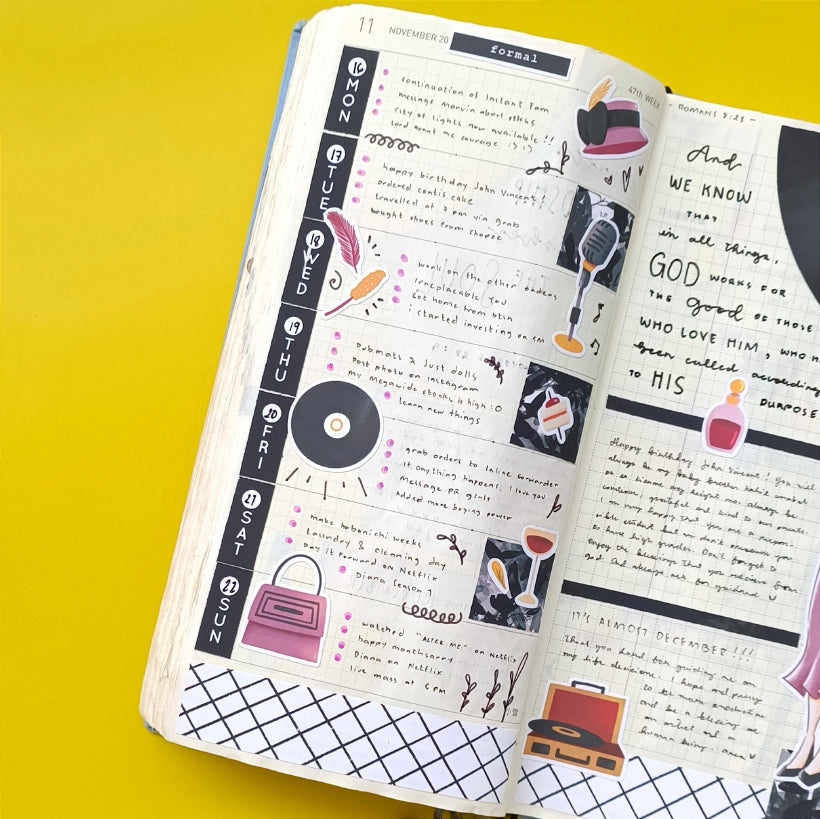 11
NOVEMBER 20
formal
47th WEEK
16
MON
continuation of Instant Fam
message Marvin about stickers
city of lights now available !!
Lord grant me courage :) :)
17
TUE
happy birthday John Vincent!
ordered contis cake
travelled at 7 pm via grab
bought shoes from shopee
18
WED
work on the other orders
irreplaceable you
Got home from btsn
i started investing on SM
19
THU
Pubmats & Just dolls
post photo on instagram
my megawide stocks is high :O
learn new things
20
FRI
grab orders to Laline forwarder
if anything happens, I love you
message PR girls
added more buying power
21
SAT
make hobonichi weeks
Laundry & cleaning day
Day it Forward on Netflix
Diana Season 3
22
SUN
watched "ALTER ME" on Netflix
happy monthsarry
Diana on Netflix
live mass at 6 pm
- ROMANS 8:28 -
And
WE KNOW
THAT
in all things,
GOD WORKS FOR
THE good OF THOSE
WHO LOVE HIM, WHO H
been called according
TO HIS
PURPOSE
Happy birthday John Vincent! You will
always be my baby brother
my height no. always be
grateful and kind to our parents.
I'm very happy that you are a respon-
sible student but we don't
u have high grades. Don't forget to
Enjoy the blessings that you receive from
God. And always ask for guidance
IT'S ALMOST DECEMBER!!!
Thank you Lord for guiding me on
my life decisions. I hope and pray
to be more productive
and be a blessing as
an artist and a
human being. amen